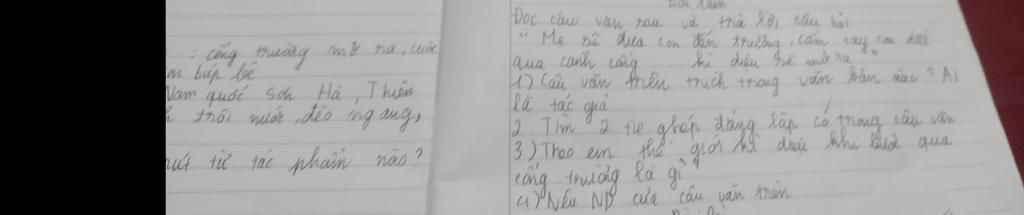 : cổng trường mở ra, cuộc
búp bê
Nam quốc sơn Hà, Thiên
trôi nước, đèo ngang,
rút từ tác phẩm nào?
Bài làm
Đọc câu văn sau và trả lời câu hỏi
" Mẹ sẽ đưa con đến trường, cầm tay con dắt
qua cánh cổng ... kì diệu sẽ mở ra"
1) Câu văn trên trích trong văn bản nào? Ai
là tác giả
2. Tìm 2 từ ghép đẳng lập có trong câu văn
3) Theo em thế giới kì diệu khi bước qua
cổng trường là gì?
4) Nêu ND của câu văn trên